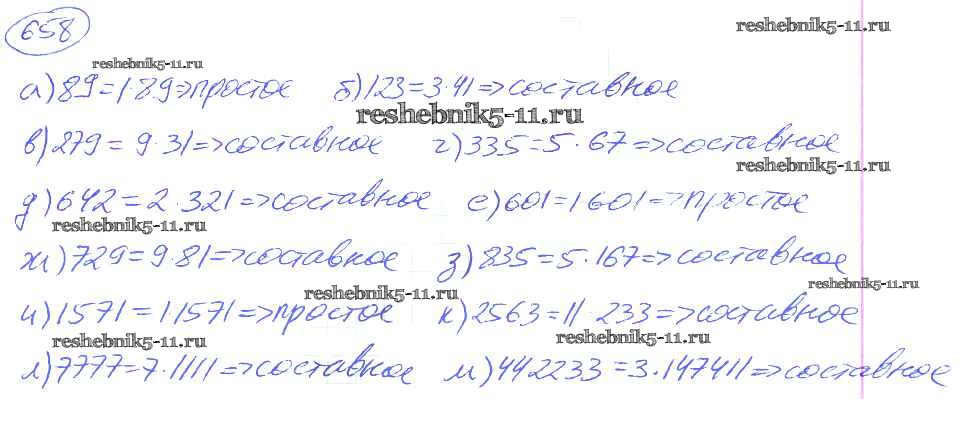 658
reshebnik5-11.ru
reshebnik5-11.ru
а) 89 = 1·89 => простое б) 123 = 3·41 => составное
reshebnik5-11.ru
в) 279 = 9·31 => составное г) 335 = 5·67 => составное
reshebnik5-11.ru
д) 642 = 2·321 => составное е) 601 = 1 601 => простое
reshebnik5-11.ru
ж) 729 = 9·81 => составное з) 835 = 5·167 => составное
reshebnik5-11.ru
reshebnik5-11.ru
и) 1571 = 1·1571 => простое к) 2563 = 11·233 => составное
reshebnik5-11.ru
reshebnik5-11.ru
л) 7777 = 7·1111 => составное м) 442233 = 3·147411 => составное